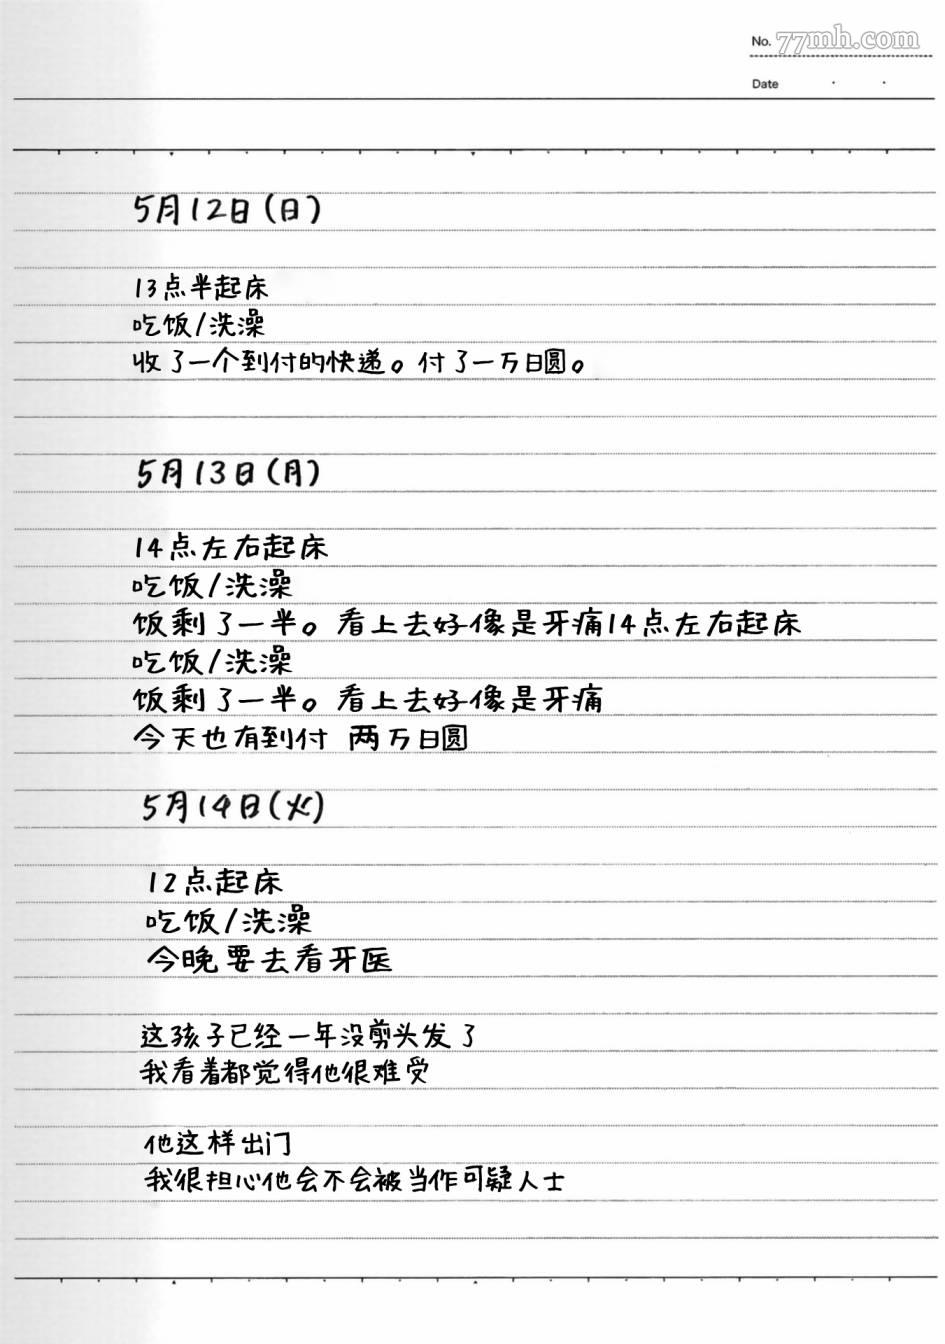 No. 77mh.com
Date
5月12日(日)
13点半起床
吃饭/洗澡
收了一个到付的快递。付了一万日圆。
5月13日(月)
14点左右起床
吃饭/洗澡
饭剩了一半。看上去好像是牙痛14点左右起床
吃饭/洗澡
饭剩了一半。看上去好像是牙痛
今天也有到付 两万日圆
5月14日(火)
12点起床
吃饭/洗澡
今晚要去看牙医
这孩子已经一年没剪头发了
我看着都觉得他很难受
他这样出门
我很担心他会不会被当作可疑人士